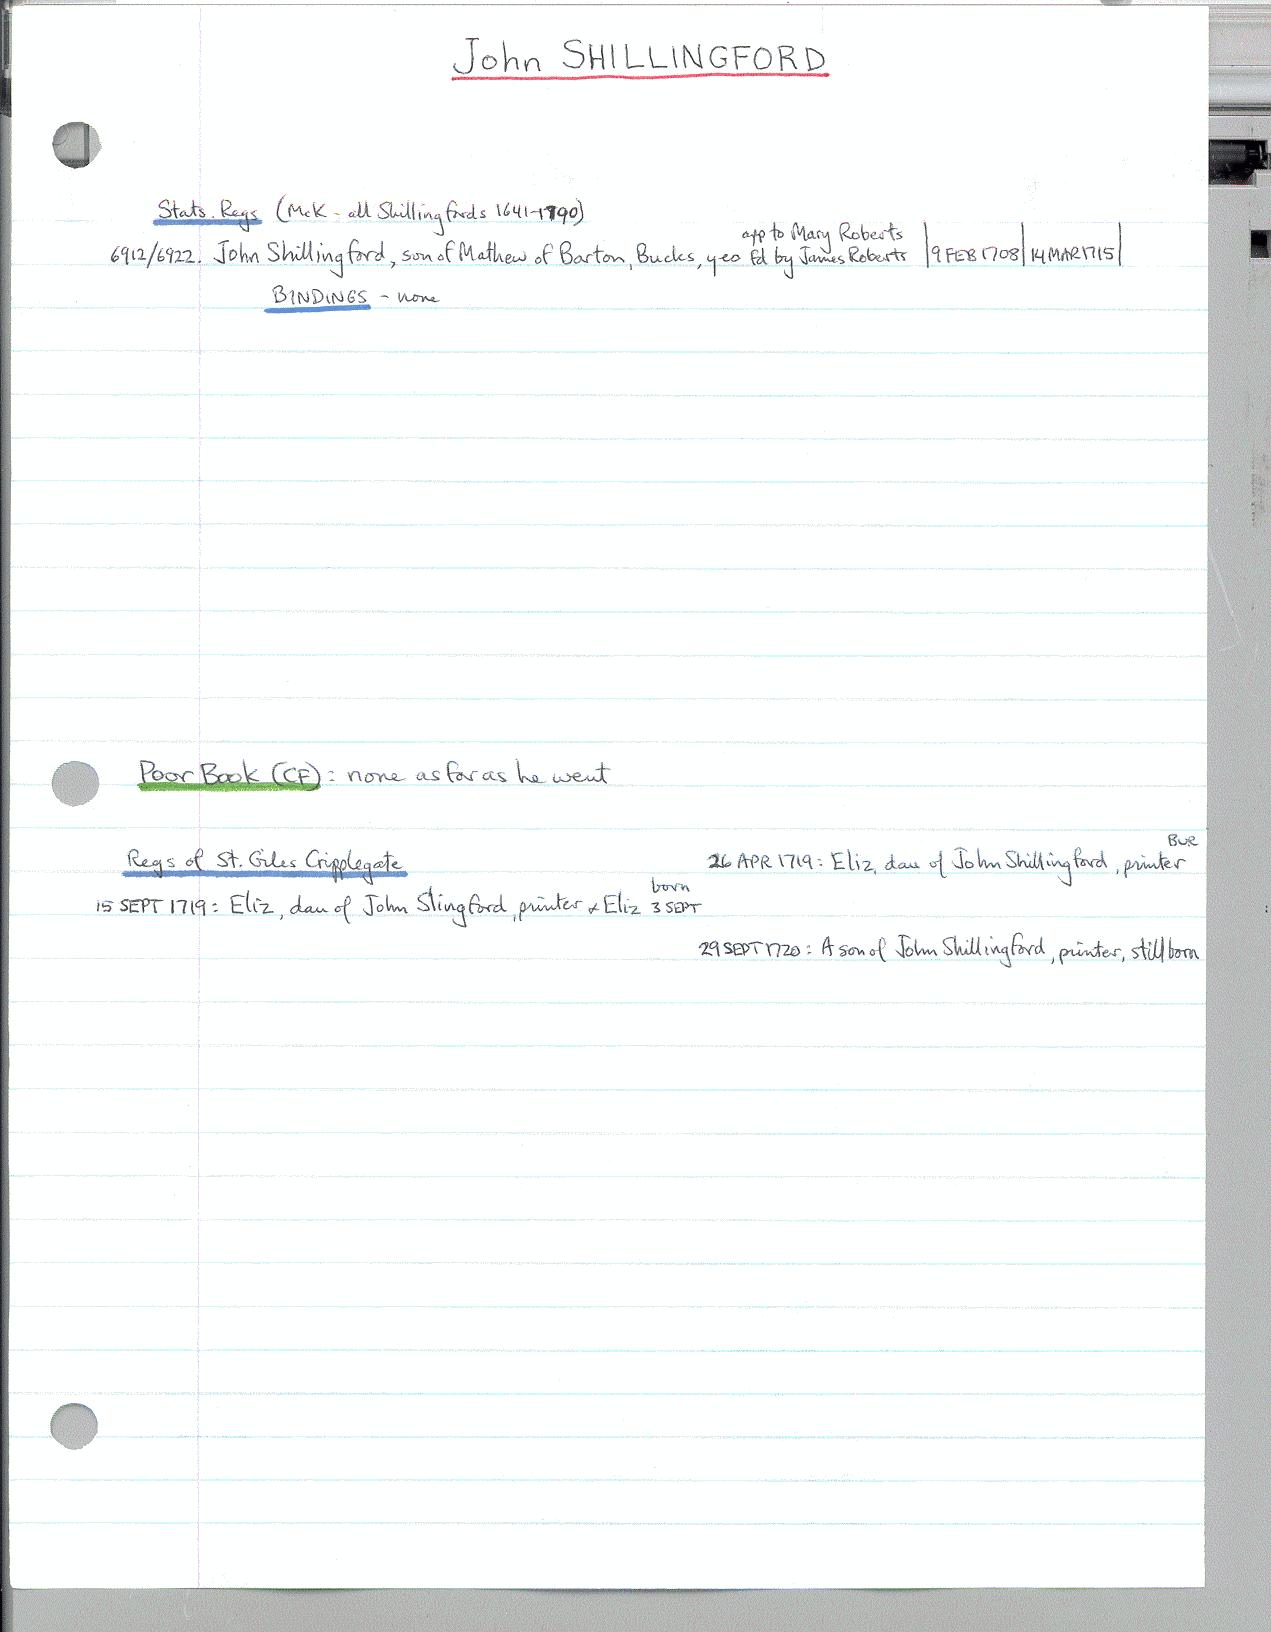 John SHILLINGFORD
Stats. Regs (McK - all Shillingfords 1641-1790)
app to Mary Roberts
6912/6922. John Shillingford, son of Mathew of Barton, Bucks, yeo fd by James Roberts |9 FEB 1708|14 MAR 1715|
BINDINGS - none
Poor Book (CF): none as far as he went
BUR
Regs of St. Giles Cripplegate 26 APR 1719: Eliz, dau of John Shillingford, printer
born
15 SEPT 1719: Eliz, dau of John Slingford, printer & Eliz 3 SEPT
29 SEPT 1720: A son of John Shillingford, printer, stillborn